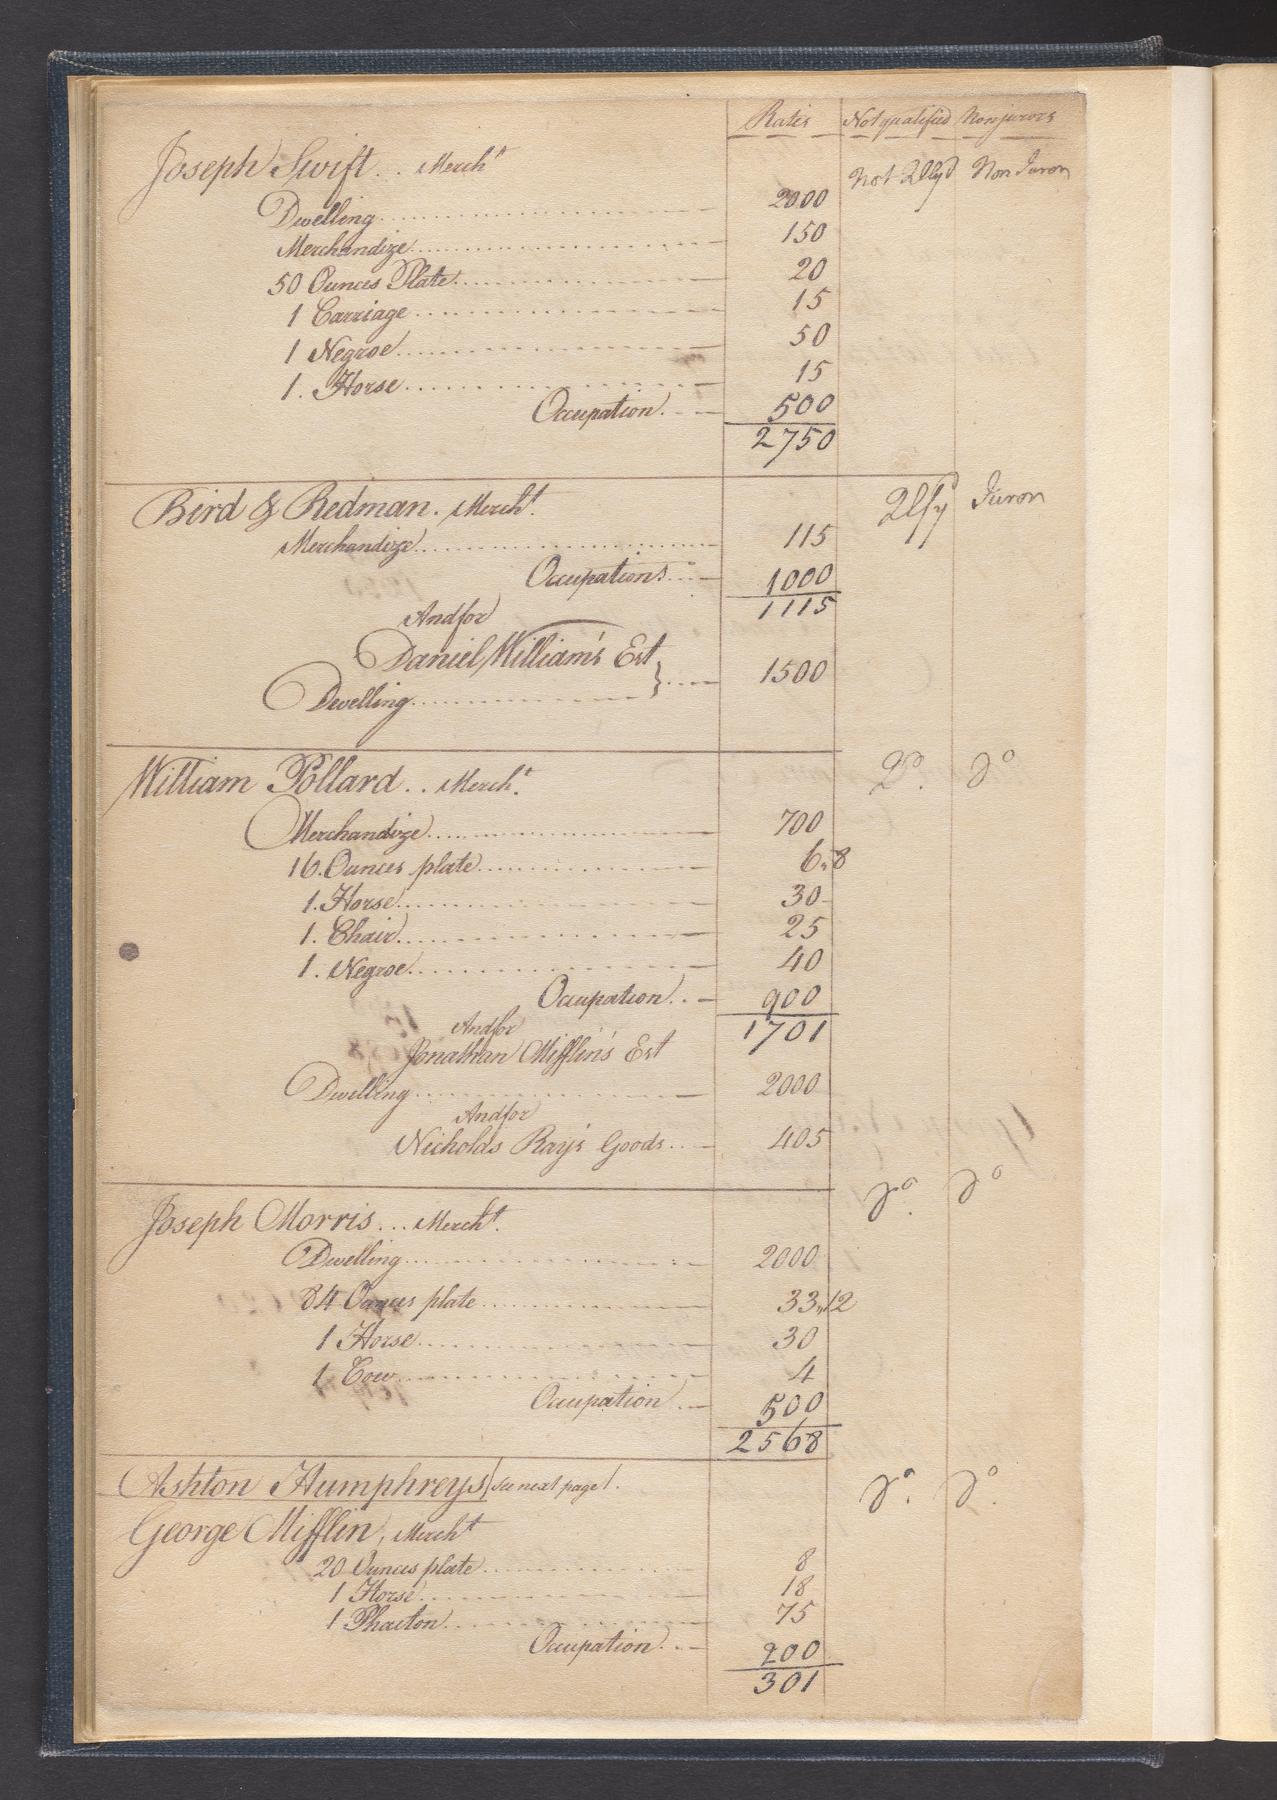 Rates Not qualified Nonjurors
Joseph Swift .. Merch.t Not Qlyd Non Juron
Dwelling 2000
Merchandize 150
50 Ounces Plate 20
1 Carriage 15
1 Negroe 50
1. Horse 15
Occupation 500
2750
Bird & Redman. Merch.t Qlfy Juron
Merchandize 115
Occupations 1000
1115
And for
Daniel William's Est
Dwelling 1500
William Pollard .. Merch.t Do. do
Merchandize 700
16. Ounces plate 6,,8
1. Horse 30
1. Chair 25
1. Negroe 40
Occupation 900
1701
And for
Jonathan Mifflin's Est
Dwelling 2000
And for
Nicholas Ray's Goods 405
Joseph Morris ... Merch.t do. do
Dwelling 2000
84 Ounces plate 33,,12
1 Horse 30
1 Cow 4
Occupation 500
2568
Ashton Humphreys / see next page /. do. do.
George Mifflin, Merch.t
20 Ounces plate 8
1 Horse 18
1 Phaeton 75
Occupation 200
301